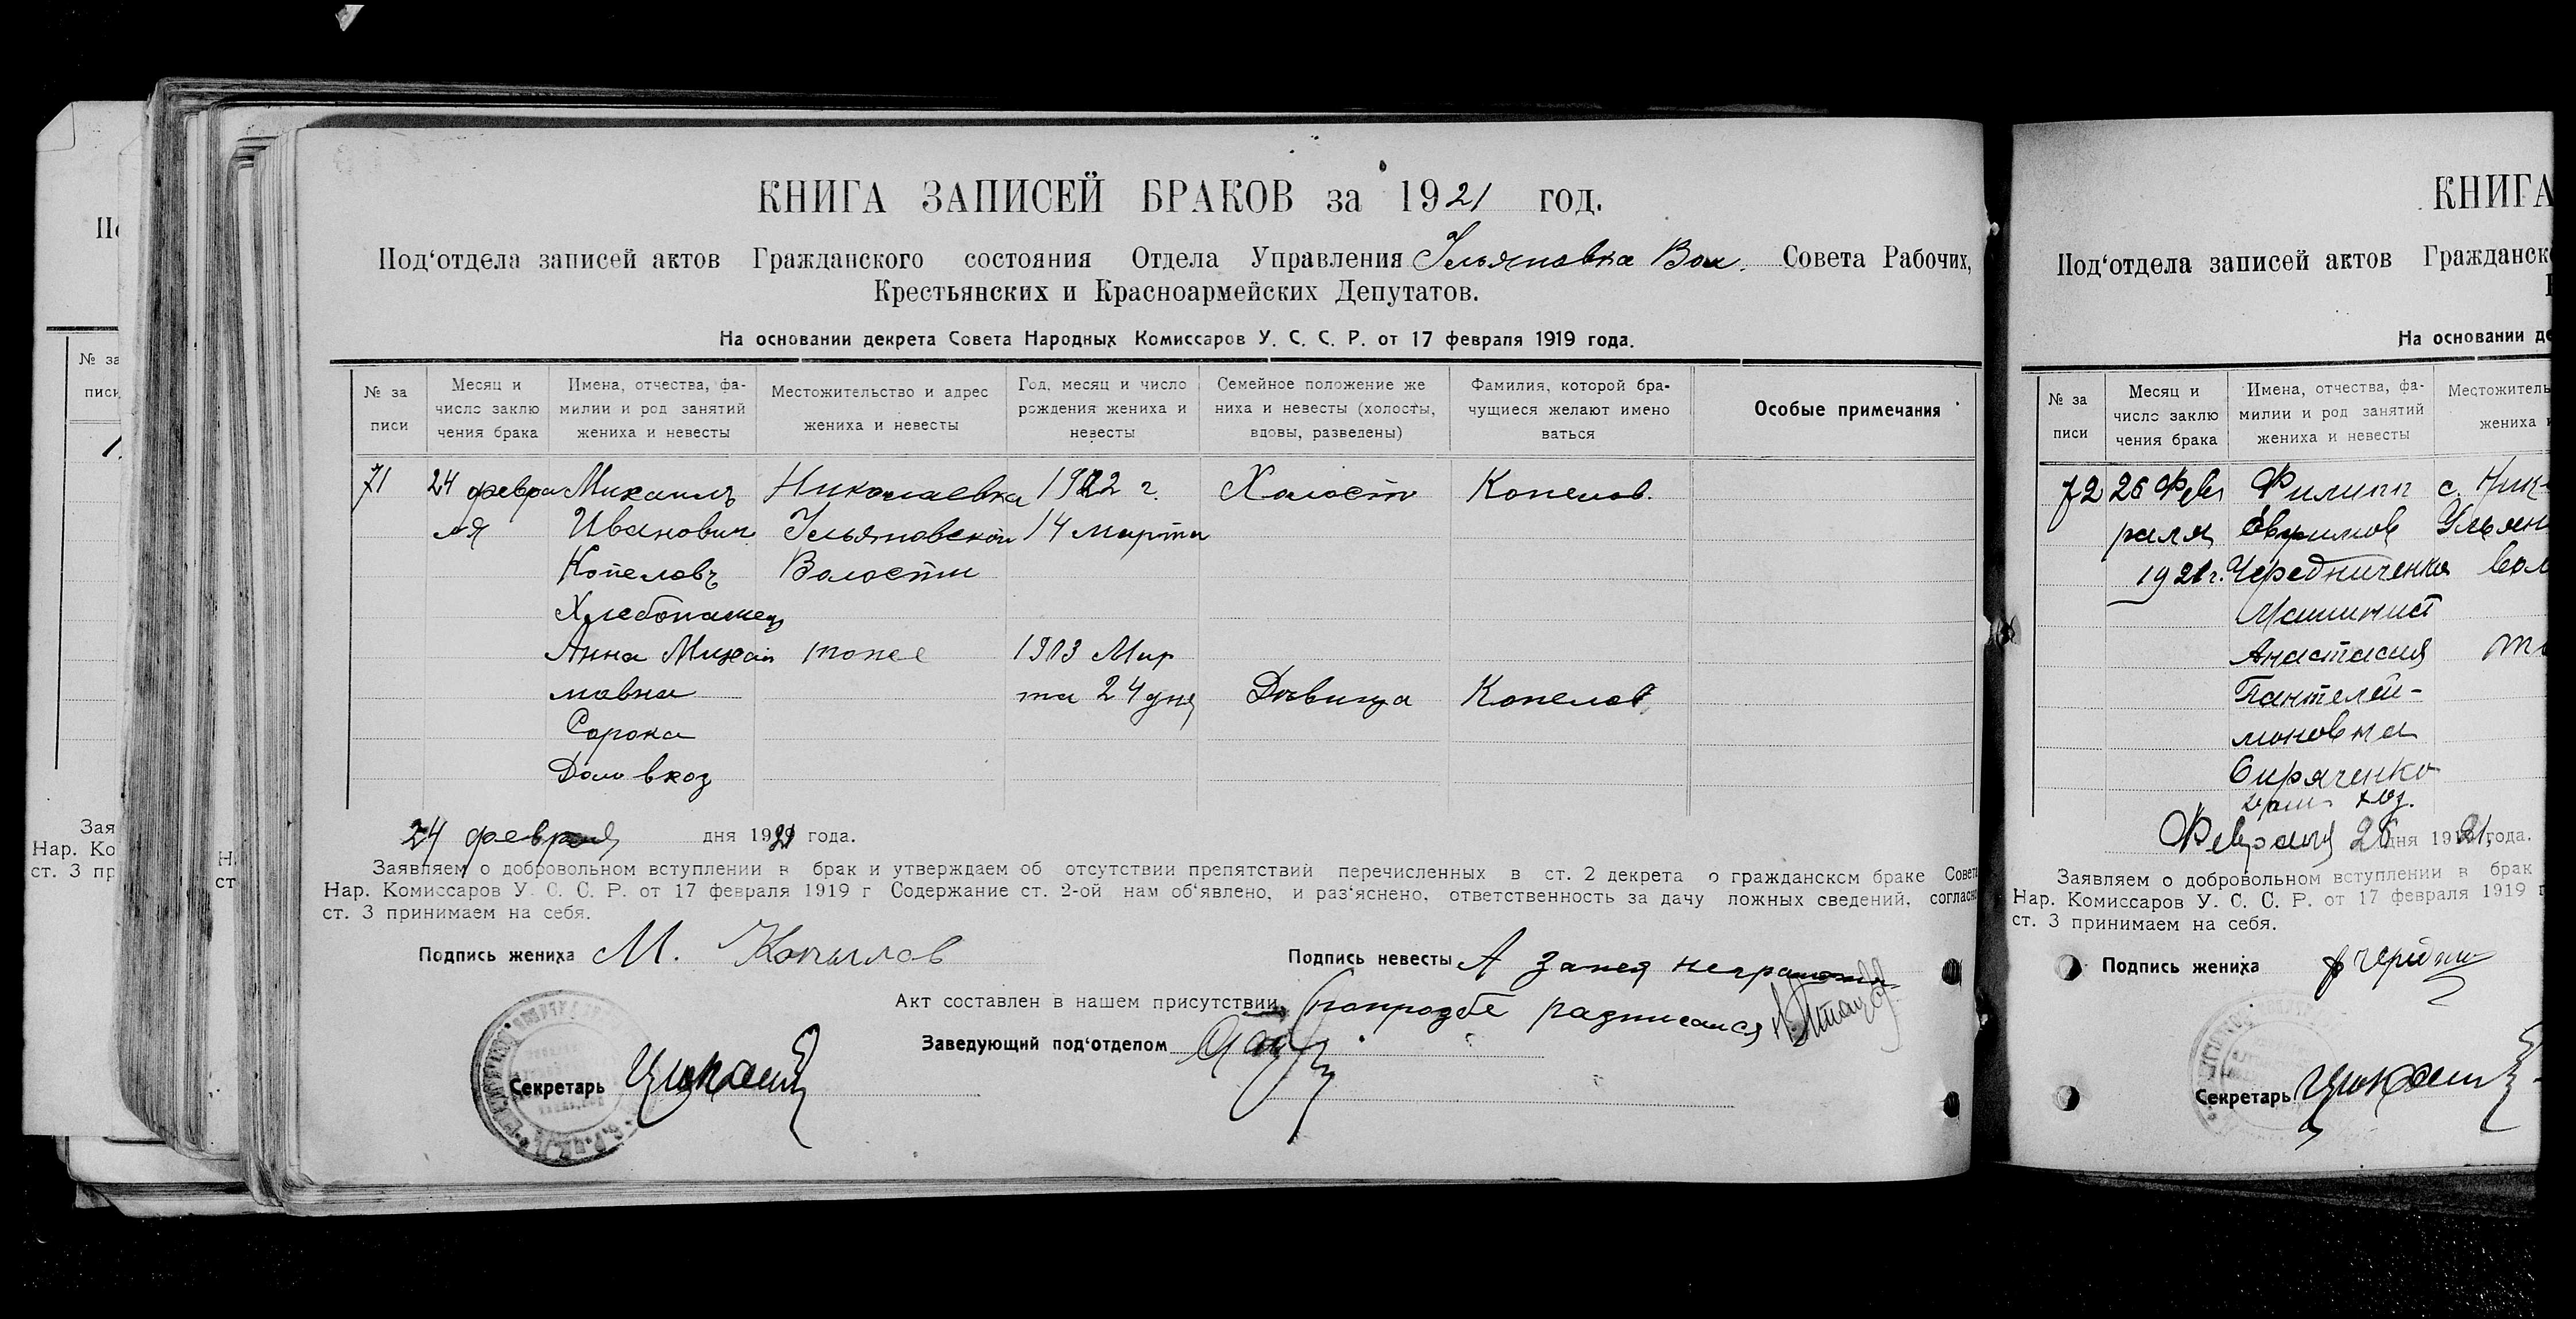 КНИГА ЗАПИСЕЙ БРАКОВ за 1921 год.
Под‘отдела записей актов Гражданского состояния Отдела Управления Ульяновка Вол. Совета Рабочих,
Крестьянских и Красноармейских Депутатов.
На основании декрета Совета Народных Комиссаров У. С. С. Р. от 17 февраля 1919 года.
№ за
писи
Месяц и
число заклю
чения брака
Имена, отчества, фа-
милии и род занятий
жениха и невесты
Местожительство и адрес
жениха и невесты
Год, месяц и число
рождения жениха и
невесты
Семейное положение же
ниха и невесты (холосты,
вдовы, разведены)
Фамилия, которой бра-
чущиеся желают имено
ваться
Особые примечания
71 24 февра Михаилъ Николаевка г. Холост Копелов.
ля Иванович Ульяновской 14 марта
Копеловъ Волости
Хлебопашец
Анна Михай тоже 1903 Мар
ловна та 24 дня Дѣвица Копелов
Сорока
Домовхоз
24 февраля дня 1921 года.
Заявляем о добровольном вступлении в брак и утверждаем об отсутствии препятствий перечисленных в ст. 2 декрета о гражданском браке Совета
Нар. Комиссаров У. С. С. Р. от 17 февраля 1919 г Содержание ст. 2-ой нам об‘явлено, и раз‘яснено, ответственность за дачу ложных сведений, согласно
ст. 3 принимаем на себя.
Подпись жениха М. Копылов
Подпись невесты А занея неграмотна
Акт составлен в нашем присутствии, попрозбе разписался
Заведующий под‘отделом
Секретарь
КНИГА
Под‘отдела записей актов Гражданск
На основании де
№ за
писи
Месяц и
число заклю
чения брака
Имена, отчества, фа-
милии и род занятий
жениха и невесты
Местожитель
жениха и
72 26 Фев Филипп с. Ник
раля Евфимов Ульян
1921 г. Чередниченко вол
Машинист
Анастасия то
Пантелей-
моновна
Сиряченко
дом хоз.
Февраля 26 дня 1921 года.
Заявляем о добровольном вступлении в брак
Нар. Комиссаров У. С. С. Р. от 17 февраля 1919 г
ст. 3 принимаем на себя.
Подпись жениха
Секретарь
№ за
писи
Зая
Нар. Ко
ст. 3 пр